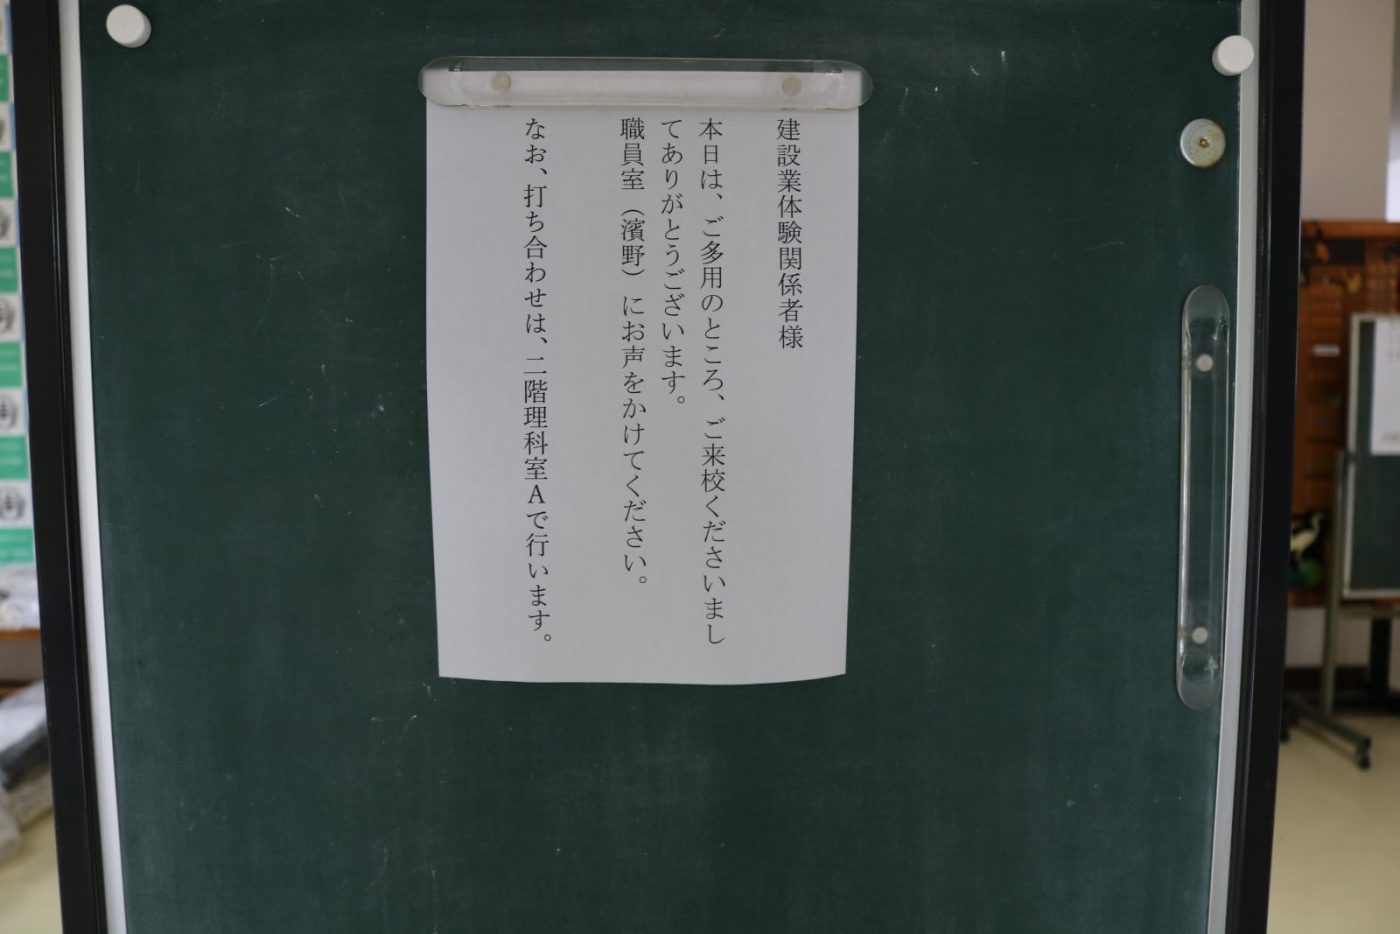 建設業体験関係者様
本日は、ご多用のところ、ご来校くださいまし
てありがとうございます。
職員室（濱野）にお声をかけてください。
なお、打ち合わせは、二階理科室Aで行います。